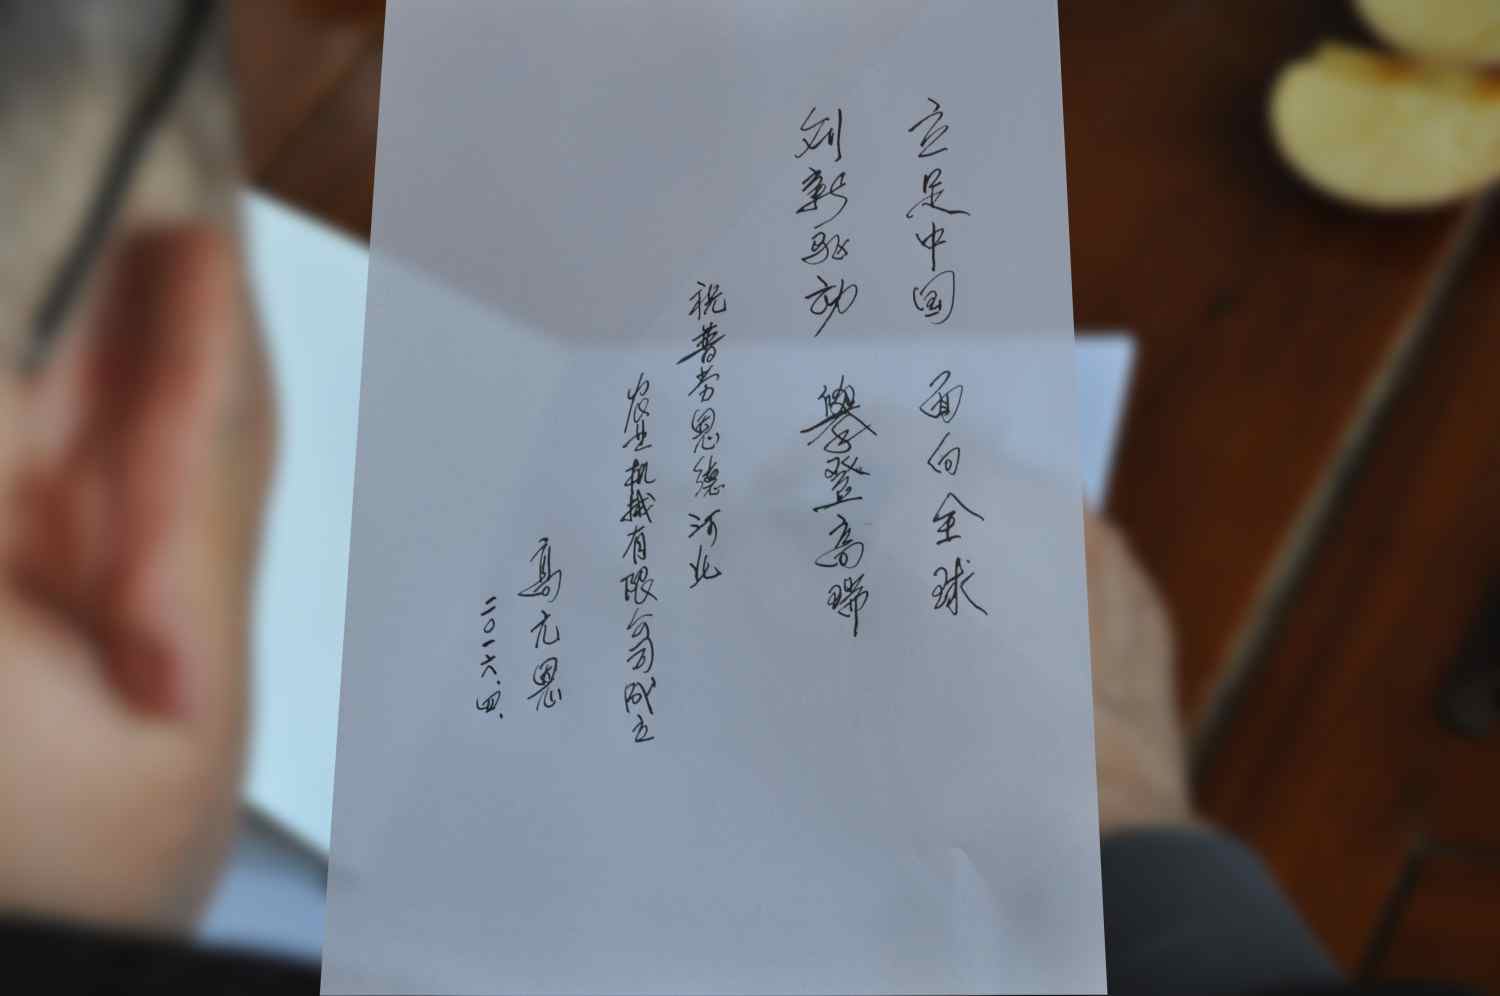 立足中国 面向全球
创新驱动 攀登高端
祝普劳恩德河北
农业机械有限公司成立
高元恩
二〇一六.四.